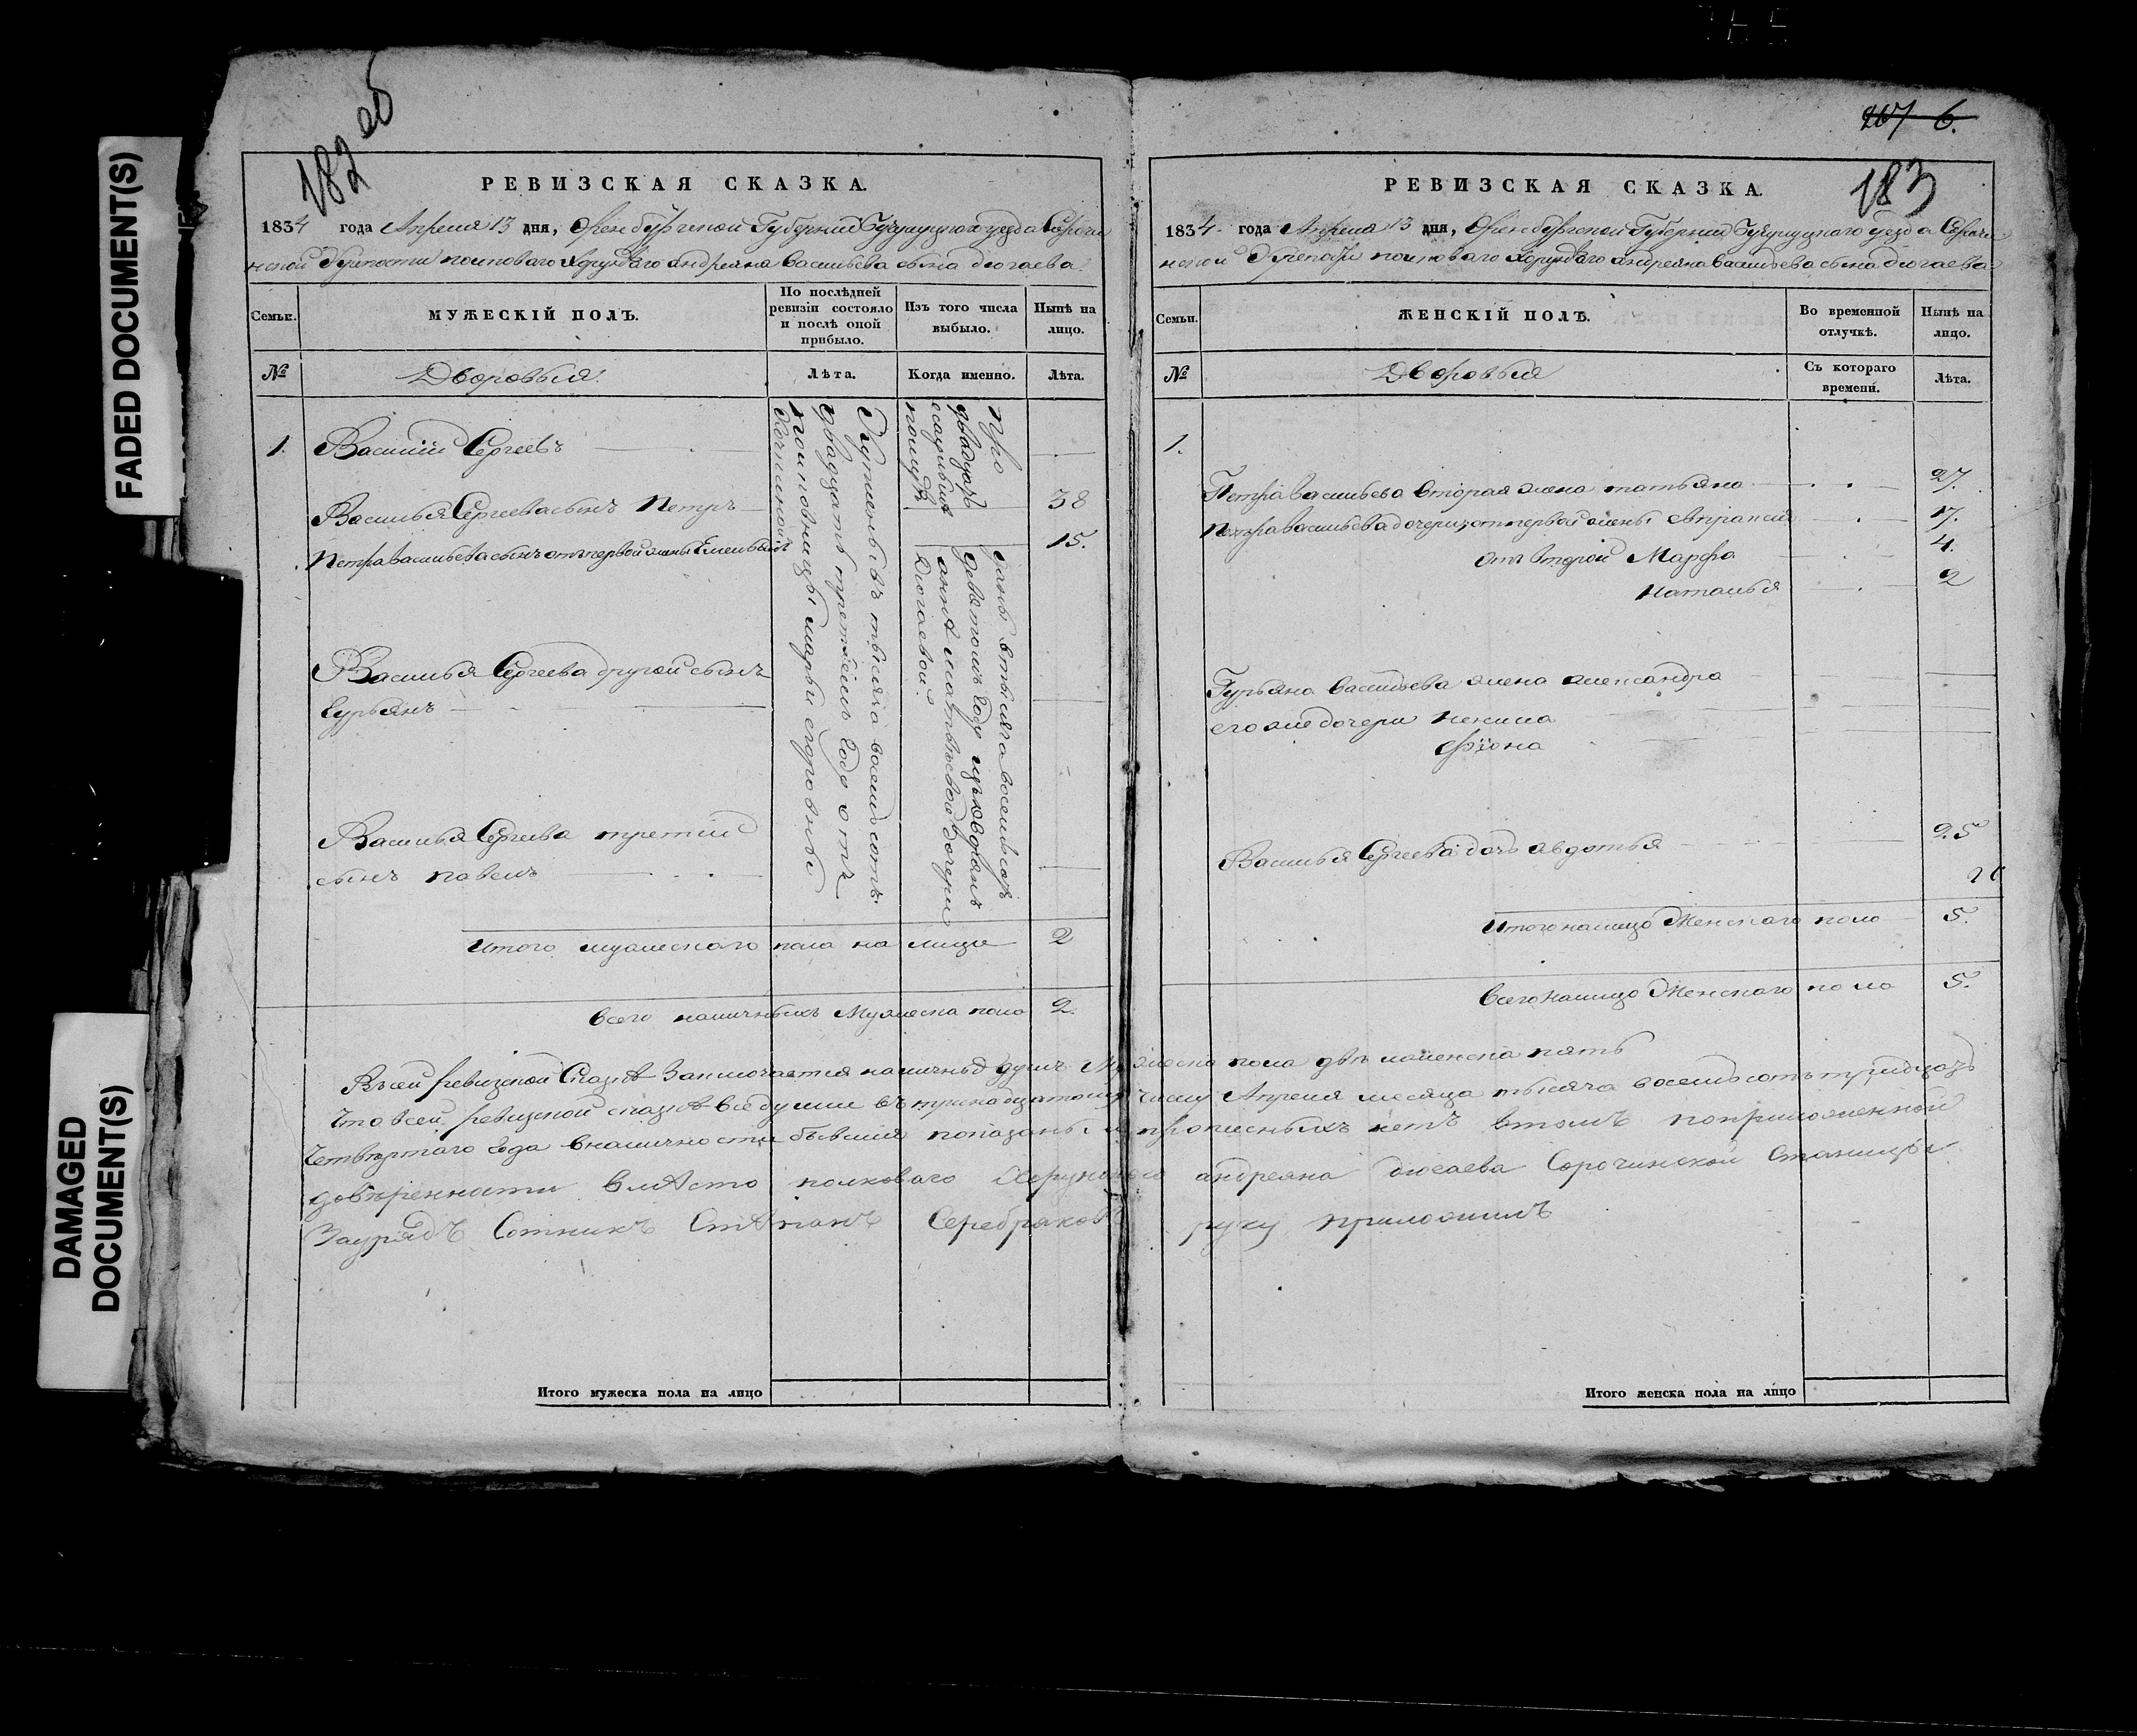 FADED DOCUMENT(S)
DAMAGED
DOCUMENT(S)
182 об
РЕВИЗСКАЯ СКАЗКА.
1834 года Апреля 13 дня, Оренбургской Губернии Бузулуцкого уезда Сорочи
нской крепости полковаго Хорунжаго андреяна васильева сына дюгаева
Семьи.
МУЖЕСКІЙ ПОЛЪ.
По послѣдней
ревизіи состояло
и послѣ оной
прибыло.
Изъ того числа
выбыло.
Нынѣ на
лицо.
№
Дворовыя.
Лѣта.
Когда именно.
Лѣта.
1. Василий Сергеевъ
Василья Сергеева сынъ Петръ 38
Петра васильева сынъ отъ первой жены 15.
Василья Сергеева другой сынъ
Гурьянъ
Василья Сергеева третий
сынъ павелъ
Куплены въ тысяча восемь сотъ
двадцать третьемъ годе отъ
марьи егоровны
двадцать
девятомъ годе
анне матвеевой дочери
Дюгаевой.
итого мужескаго пола на лицо 2
всего наличныхъ Мужеска пола 2.
Итого мужеска пола на лицо
267 6.
183
РЕВИЗСКАЯ СКАЗКА.
1834 года Апреля 13 дня, Оренбургской Губернии Бузулуцкаго уезда Сорочи
нской крепости полковаго Хорунжаго андреяна васильева сына дюгаева
Семьи.
ЖЕНСКІЙ ПОЛЪ.
Во временной
отлучкѣ.
Нынѣ на
лицо.
№
Дворовыя
Съ котораго
времени.
Лѣта.
1.
Петра васильева вторая жена татьяна 27.
Петра васильева дочери, от первой жены 17.
отъ второй Марфа 4.
наталья 2
Гурьяна васильева жена александра
его же дочери
Василья Сергеева дочь авдотья 25
итого налицо Женскаго пола 5.
всего налицо Женскаго пола 5.
Въ сей ревизской Сказке Заключается наличныхъ душъ Мужеска пола две женска пять
что в сей ревизской сказке все души въ тринадцатому числу Апреля месяца тысяча восемьсотъ тридцать
четвертаго года в наличности бывшия показаны и прописныхъ нетъ в томъ по приложенной
доверенности вместо полковаго Хорунжаго андреяна дюгаева Сорочинской Станицы
Заурядъ Сотникъ Степанъ Серебряковъ руку приложилъ
Итого женска пола на лицо